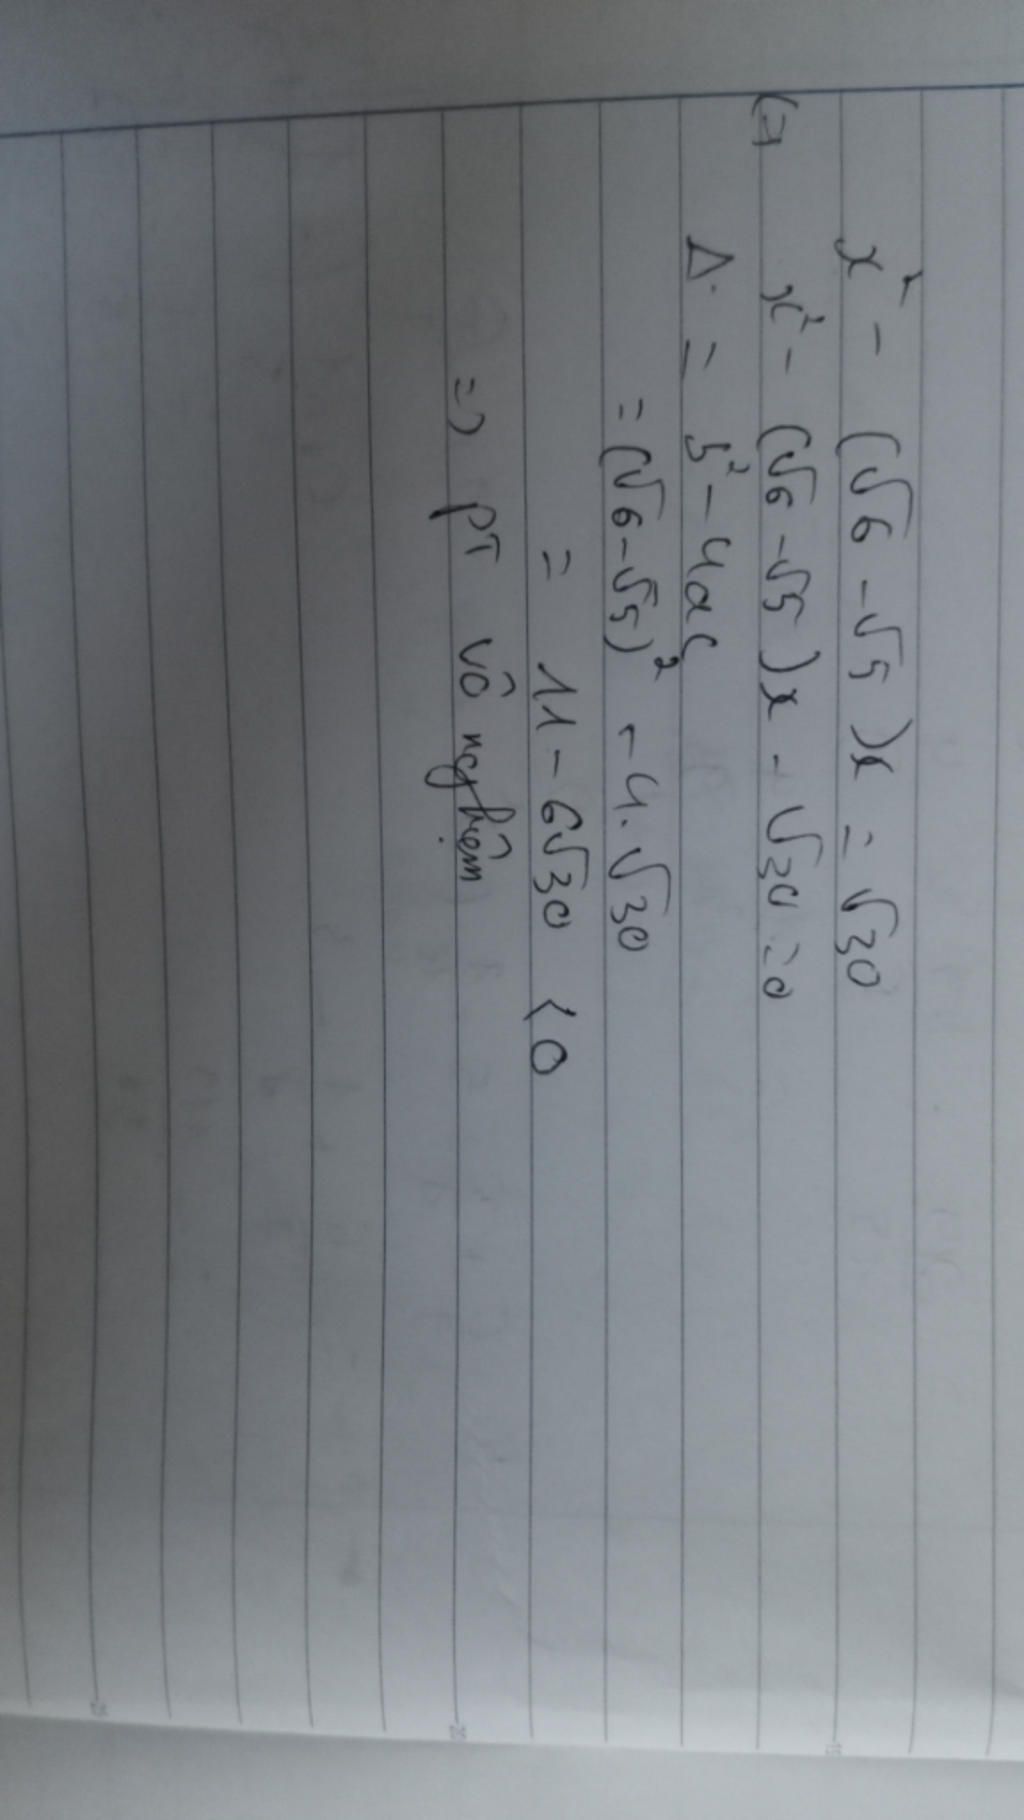 x² - (√6 - √5)x = √30
(=) x² - (√6 - √5)x - √30 = 0
Δ = b² - 4ac
= (√6 - √5)² - 4.√30
= 11 - 6√30 < 0
=> PT vô nghiệm